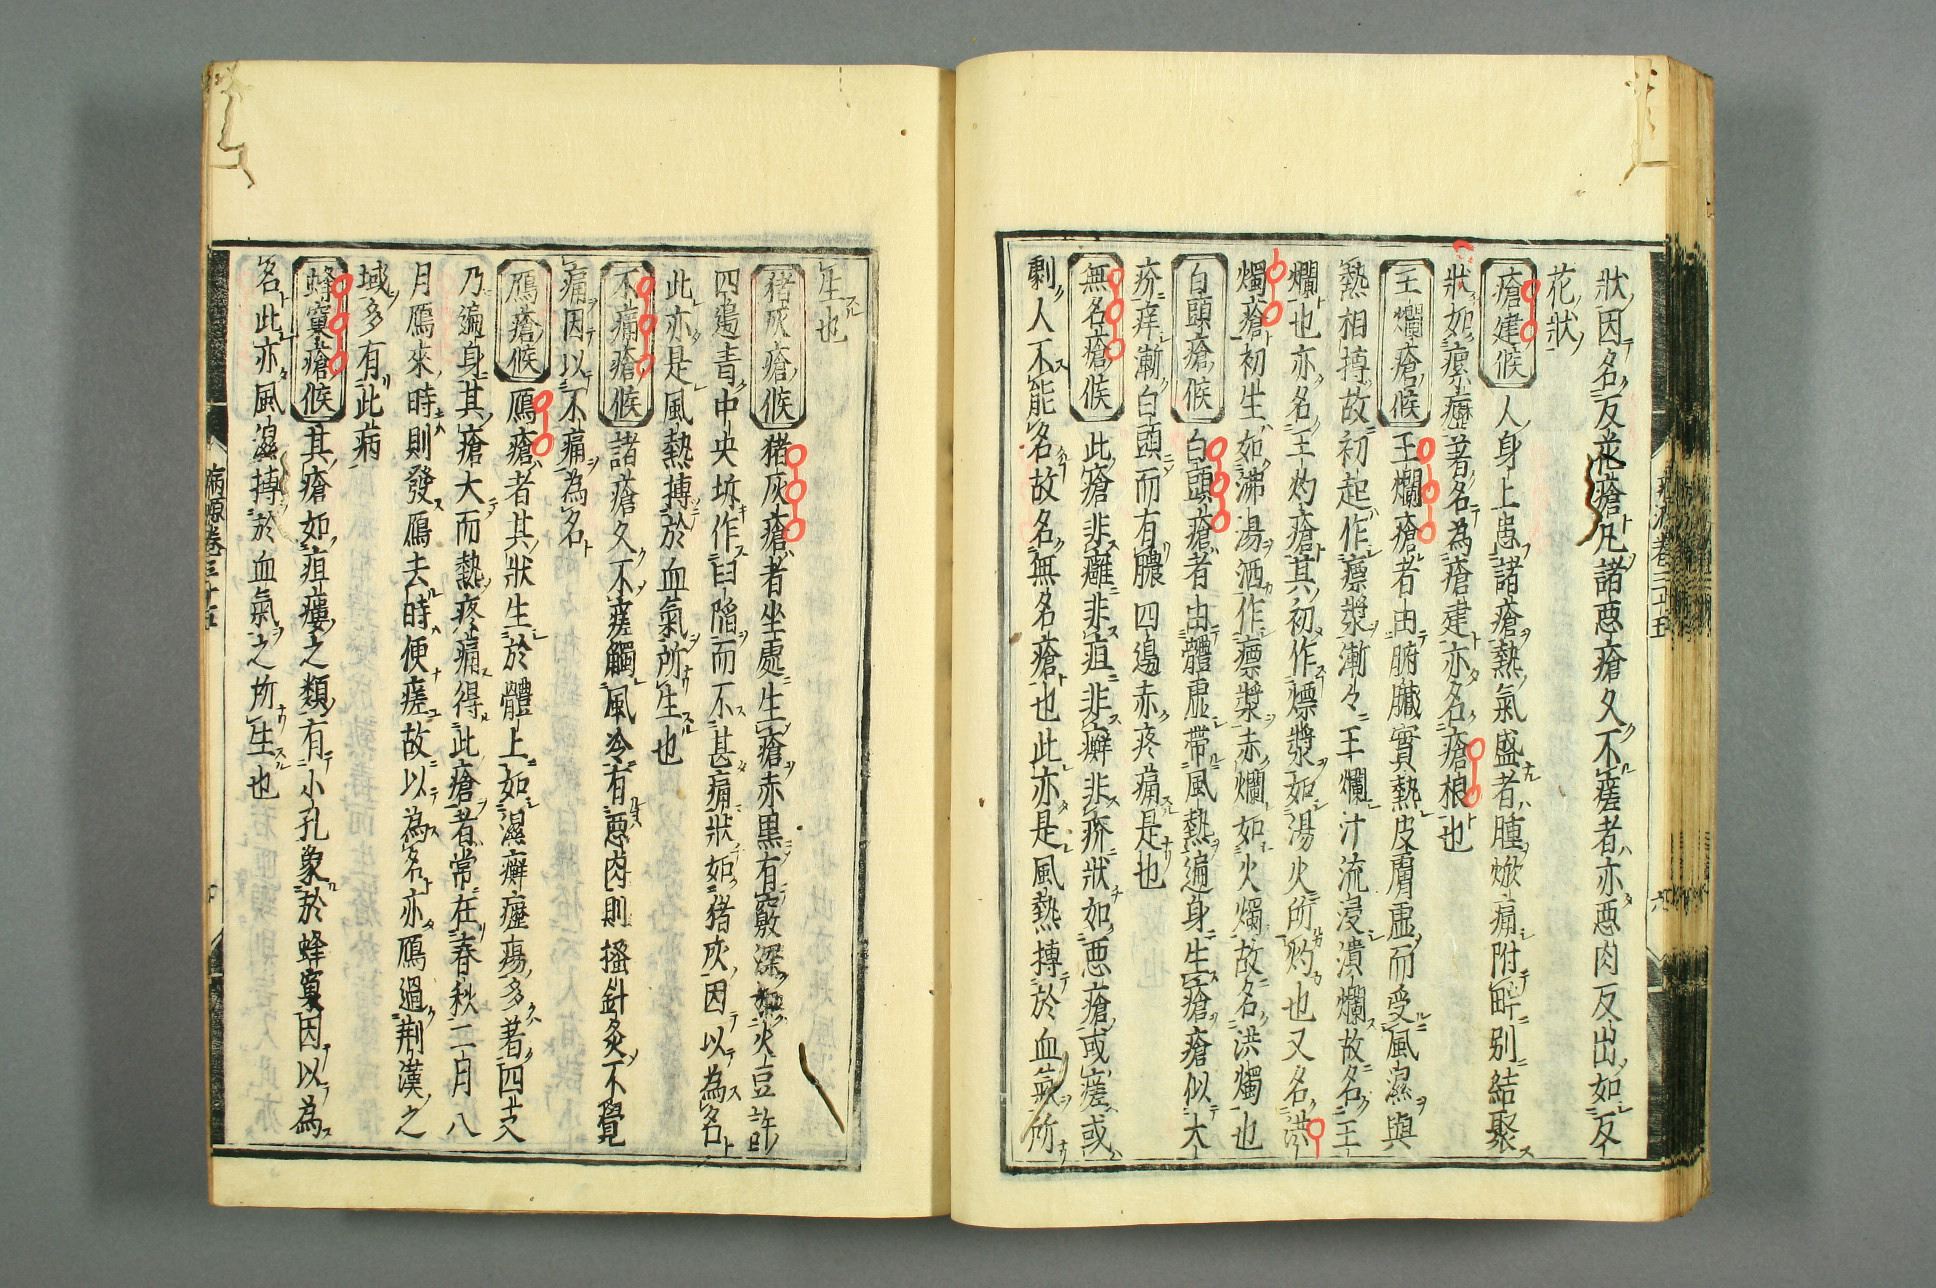 狀因名反花瘡凡諸惡瘡久不瘥者亦惡肉反出如反
花狀
瘡建候 人身上患諸瘡熱氣盛者腫焮痛附畔別結聚
狀如瘭癧著名為瘡建亦名瘡根也
王爛瘡候 王爛瘡者由腑臟實熱皮膚虛而受風濕與
熱相搏故初起作瘭漿漸々王爛汁流浸潰爛故名王
爛也亦名王灼瘡其初作熛漿如湯火所灼也又名洪
燭瘡初生如沸湯洒作瘭漿赤爛如火燭故名洪燭也
白頭瘡候 白頭瘡者由體虛帶風熱遍身生瘡瘡似大
疥痒漸白頭而有膿四邊赤疼痛是也
無名瘡候 此瘡非癰非疽非癬非疥狀如惡瘡或瘥或
劇人不能名故名無名瘡也此亦是風熱搏於血氣所
生也
猪灰瘡候 猪灰瘡者坐處生瘡赤黑有竅深如火豆許
四邊青中央坎作臼陷而不甚痛狀如猪灰因以為名
此亦是風熱搏於血氣所生也
不痛瘡候 諸瘡久不瘥觸風冷有惡肉則搔針灸不覺
痛因以不痛為名
鴈瘡候 鴈瘡者其狀生於體上如濕癬瘻瘍多著四支
乃遍身其瘡大而熱疼痛得此瘡者常在春秋二月八
月鴈來時則發鴈去時便瘥故以為名亦鴈過荆漢之
域多有此病
蜂窠瘡候 其瘡如疽瘻之類有小孔象於蜂窠因以為
名此亦風濕搏於血氣之所生也
病源卷三十五